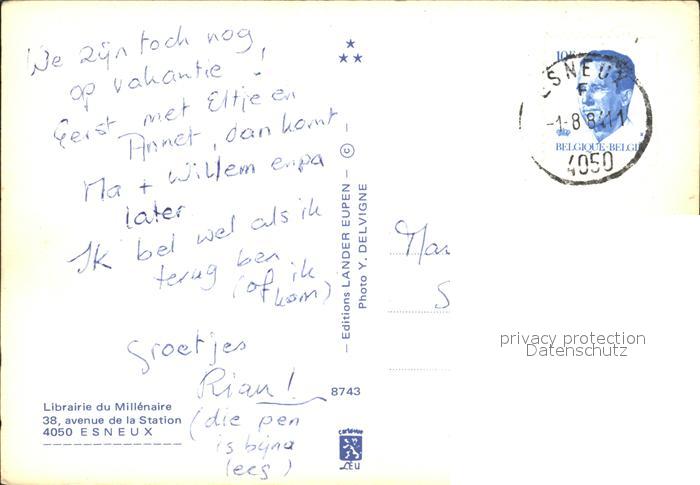 We zijn toch nog
op vakantie !
Eerst met Eltje en
Annet, dan komt
Ma + Willem en pa
later
Ik bel wel als ik
terug ben
(of ik
kom)
Groetjes
Rian!
(die pen
is bijna
leeg)
Librairie du Millénaire
38, avenue de la Station
4050 ESNEUX
— Editions LANDER EUPEN — ©
Photo Y. DELVIGNE
8743
cartovue
LEU
10F
BELGIQUE-BELGI
ESNEUX
F
-1-8 84 11
4050
Mar
S
privacy protection
Datenschutz